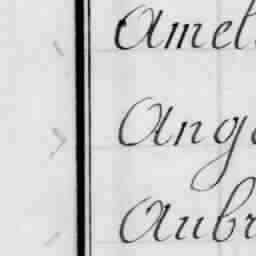 Amel
Ang
Aubr